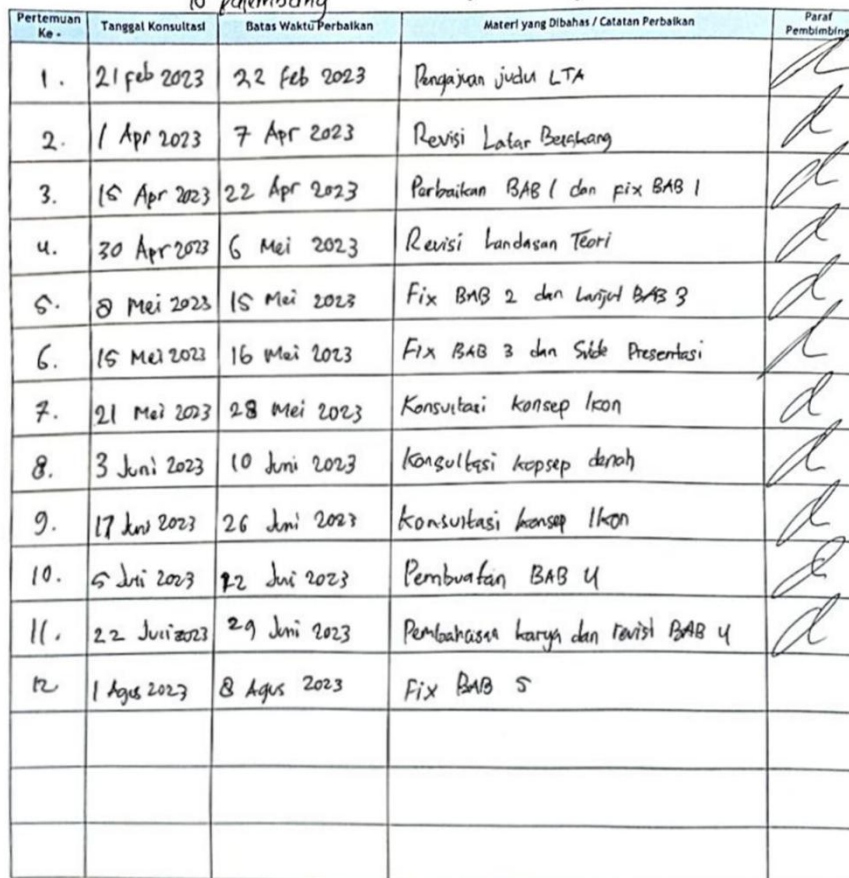 10 palembang
Pertemuan Ke - Tanggal Konsultasi Batas Waktu Perbaikan Materi yang Dibahas / Catatan Perbaikan Paraf Pembimbing
1. 21 feb 2023 22 Feb 2023 Pengajuan judu LTA
2. 1 Apr 2023 7 Apr 2023 Revisi Latar Belakang
3. 15 Apr 2023 22 Apr 2023 Perbaikan BAB 1 dan fix BAB 1
4. 30 Apr 2023 6 Mei 2023 Revisi Landasan Teori
5. 8 Mei 2023 15 Mei 2023 Fix BAB 2 dan Lanjut BAB 3
6. 15 Mei 2023 16 Mei 2023 Fix BAB 3 dan Slide Presentasi
7. 21 Mei 2023 28 Mei 2023 Konsultasi konsep Ikon
8. 3 Juni 2023 10 Juni 2023 Konsultasi kopsep denah
9. 17 Juni 2023 26 Juni 2023 Konsultasi konsep Ikon
10. 5 Juli 2023 12 Juli 2023 Pembuatan BAB 4
11. 22 Juli 2023 29 Juni 2023 Pembahasan karya dan revisi BAB 4
12 1 Agus 2023 8 Agus 2023 Fix BAB 5